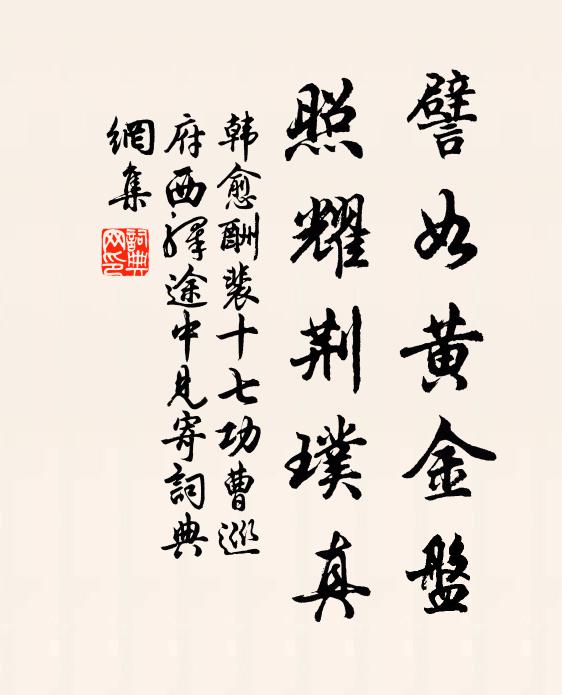 譬如黄金盤
照耀荆璞真
韩愈酬裴十七功曹巡
府西驿途中見寄詞典
網集
詞典
网印